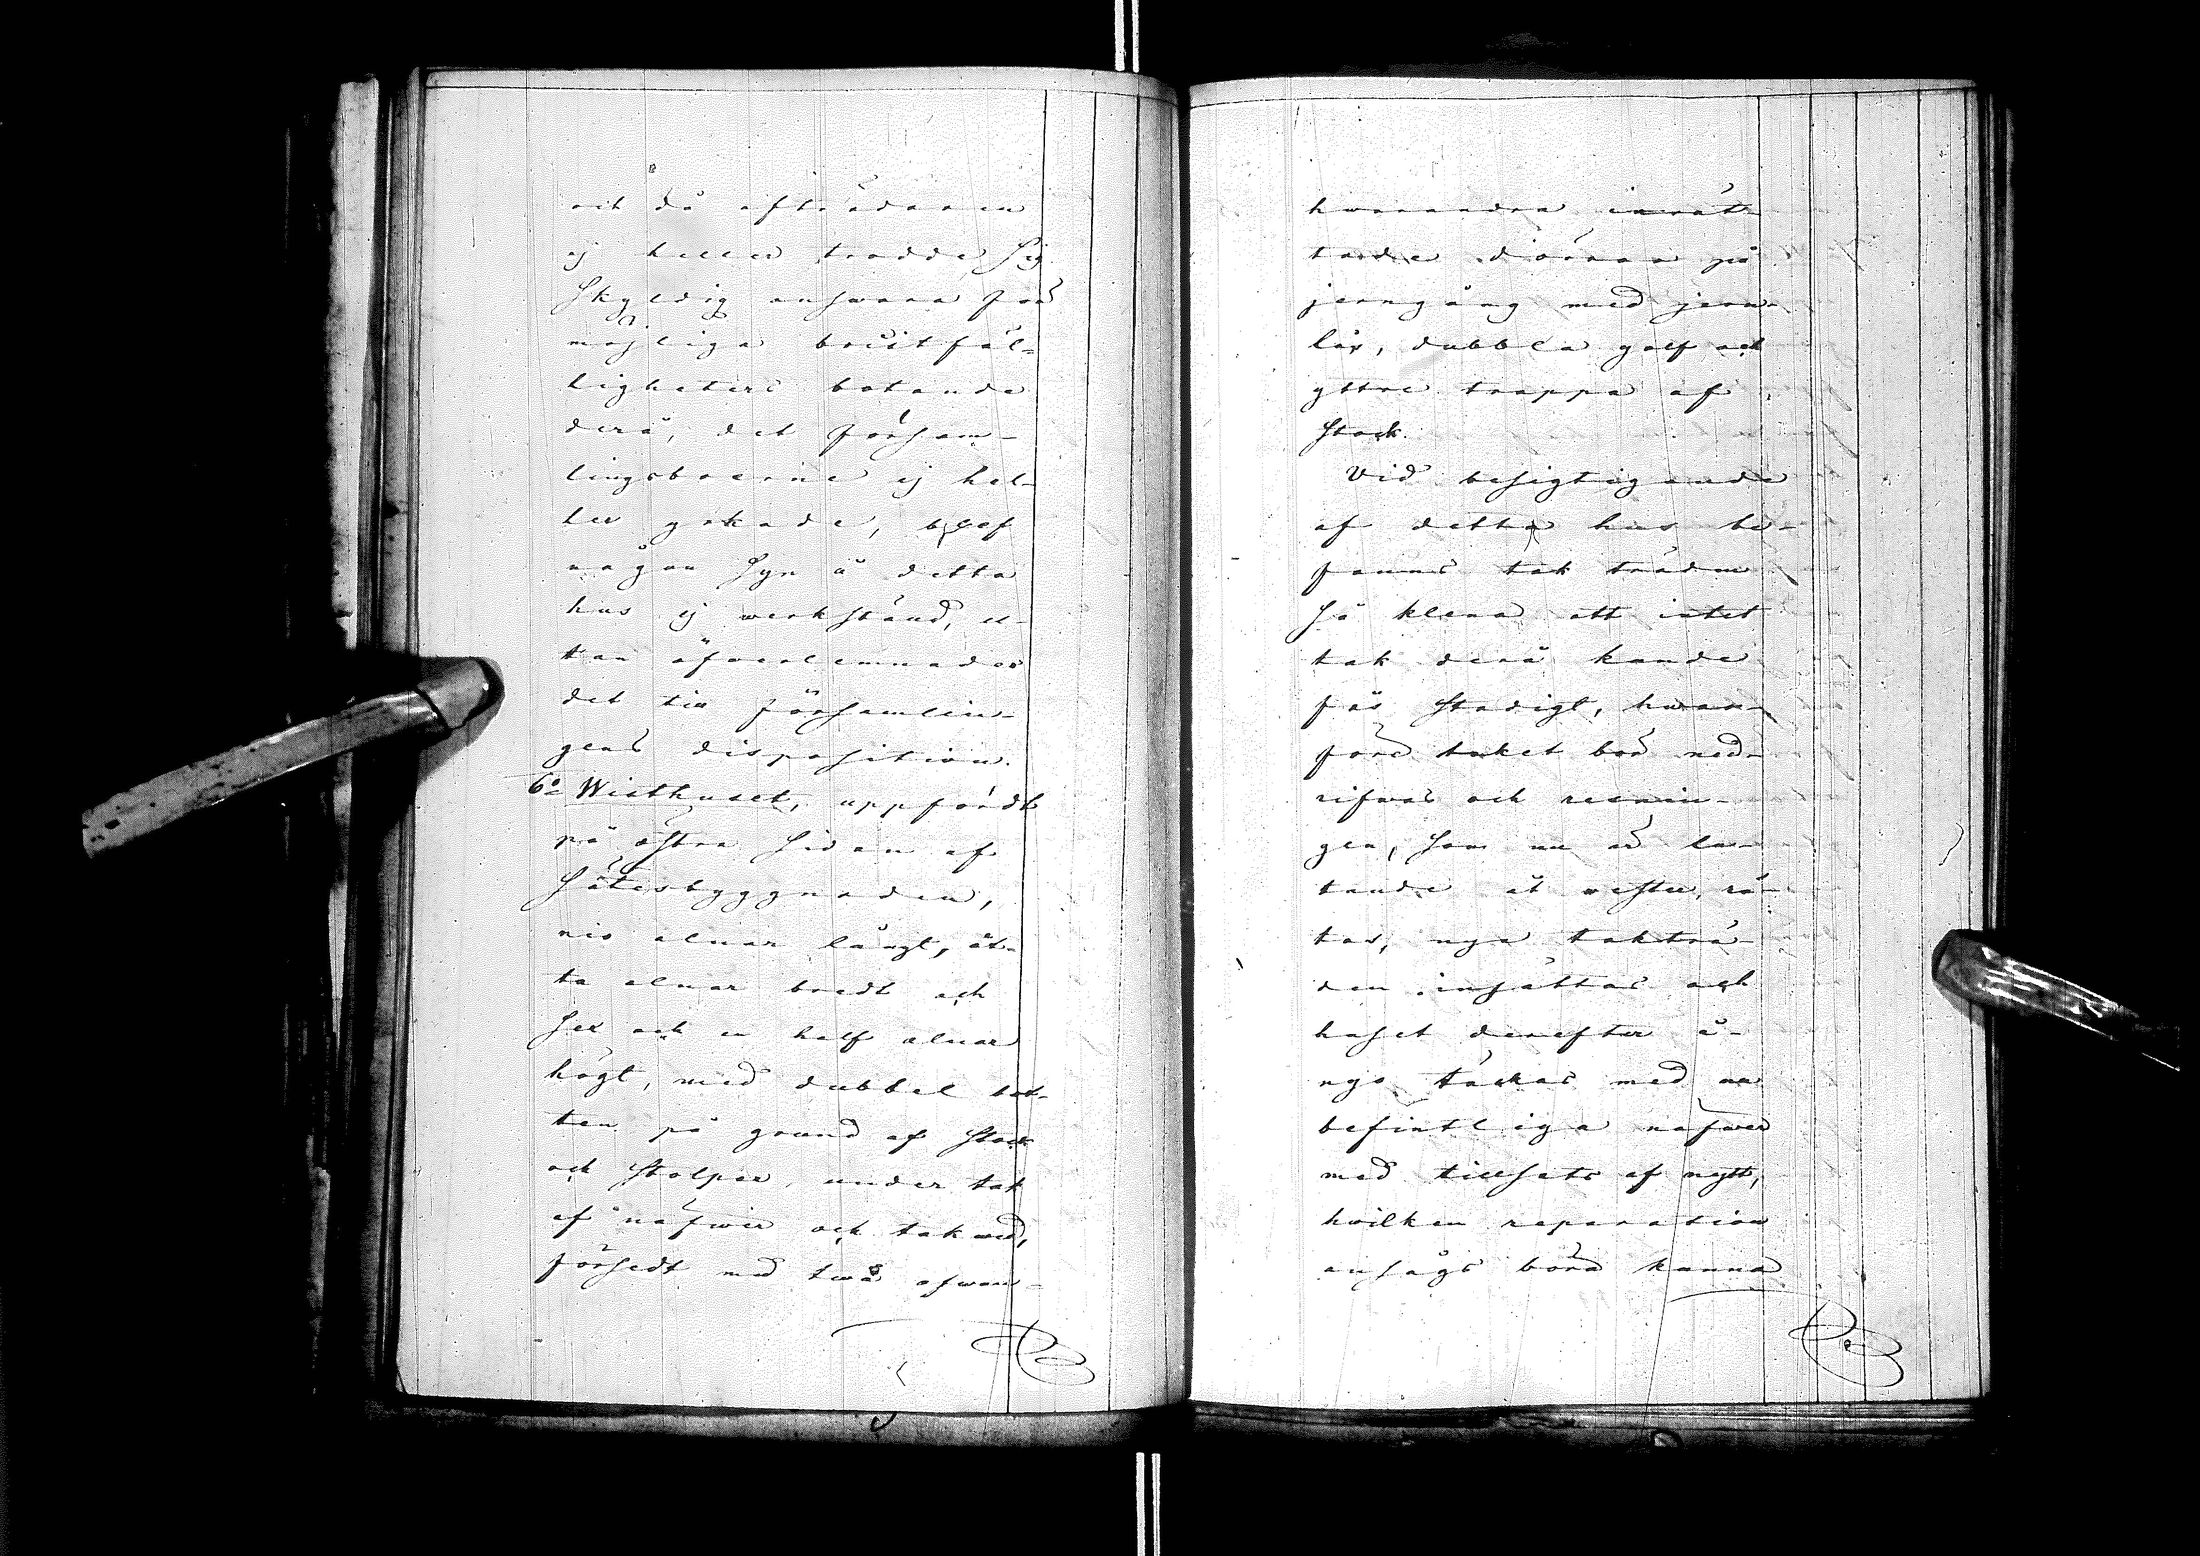 och då afträdaren
ej heller trodde sig
skyldig answara för
möjliga bristfäl-
ligheters botande
derå, det försam-
lingsboerne ej hel-
ler yrkade, blef
någon syn å detta
hus ej werkställd, u-
tan öfwerlemnades
det till församlin-
gens disposition.
6o Wisthuset, uppfördt
på östra sidan af
Sätesbyggnaden,
nio alnar långt, åt-
ta alnar bredt och
sex och en half alnar
högt, med dubbel bot-
ten på grund af stock
och stolpar under tak
af näfwer och takwed,
försedt med twå ofwan-
hwarandra inrät-
tade dörrar på
jerngång med jern-
lås, dubbla golf och
yttre trappa af
stock.
Vid besigtigande
af detta hus be-
fanns tak träden
så klena att intet
tak derå kunde
fås stadigt, hwar-
före taket bör ned-
rifwas och resnin-
gen, som nu är lu-
tande åt wester, rä-
tas, nya takträ-
den insättas och
huset derefter å-
nyo täckas med nu
befintliga näfwer
med tillsats af nytt,
hvilken reparation
ansågs böra kunna